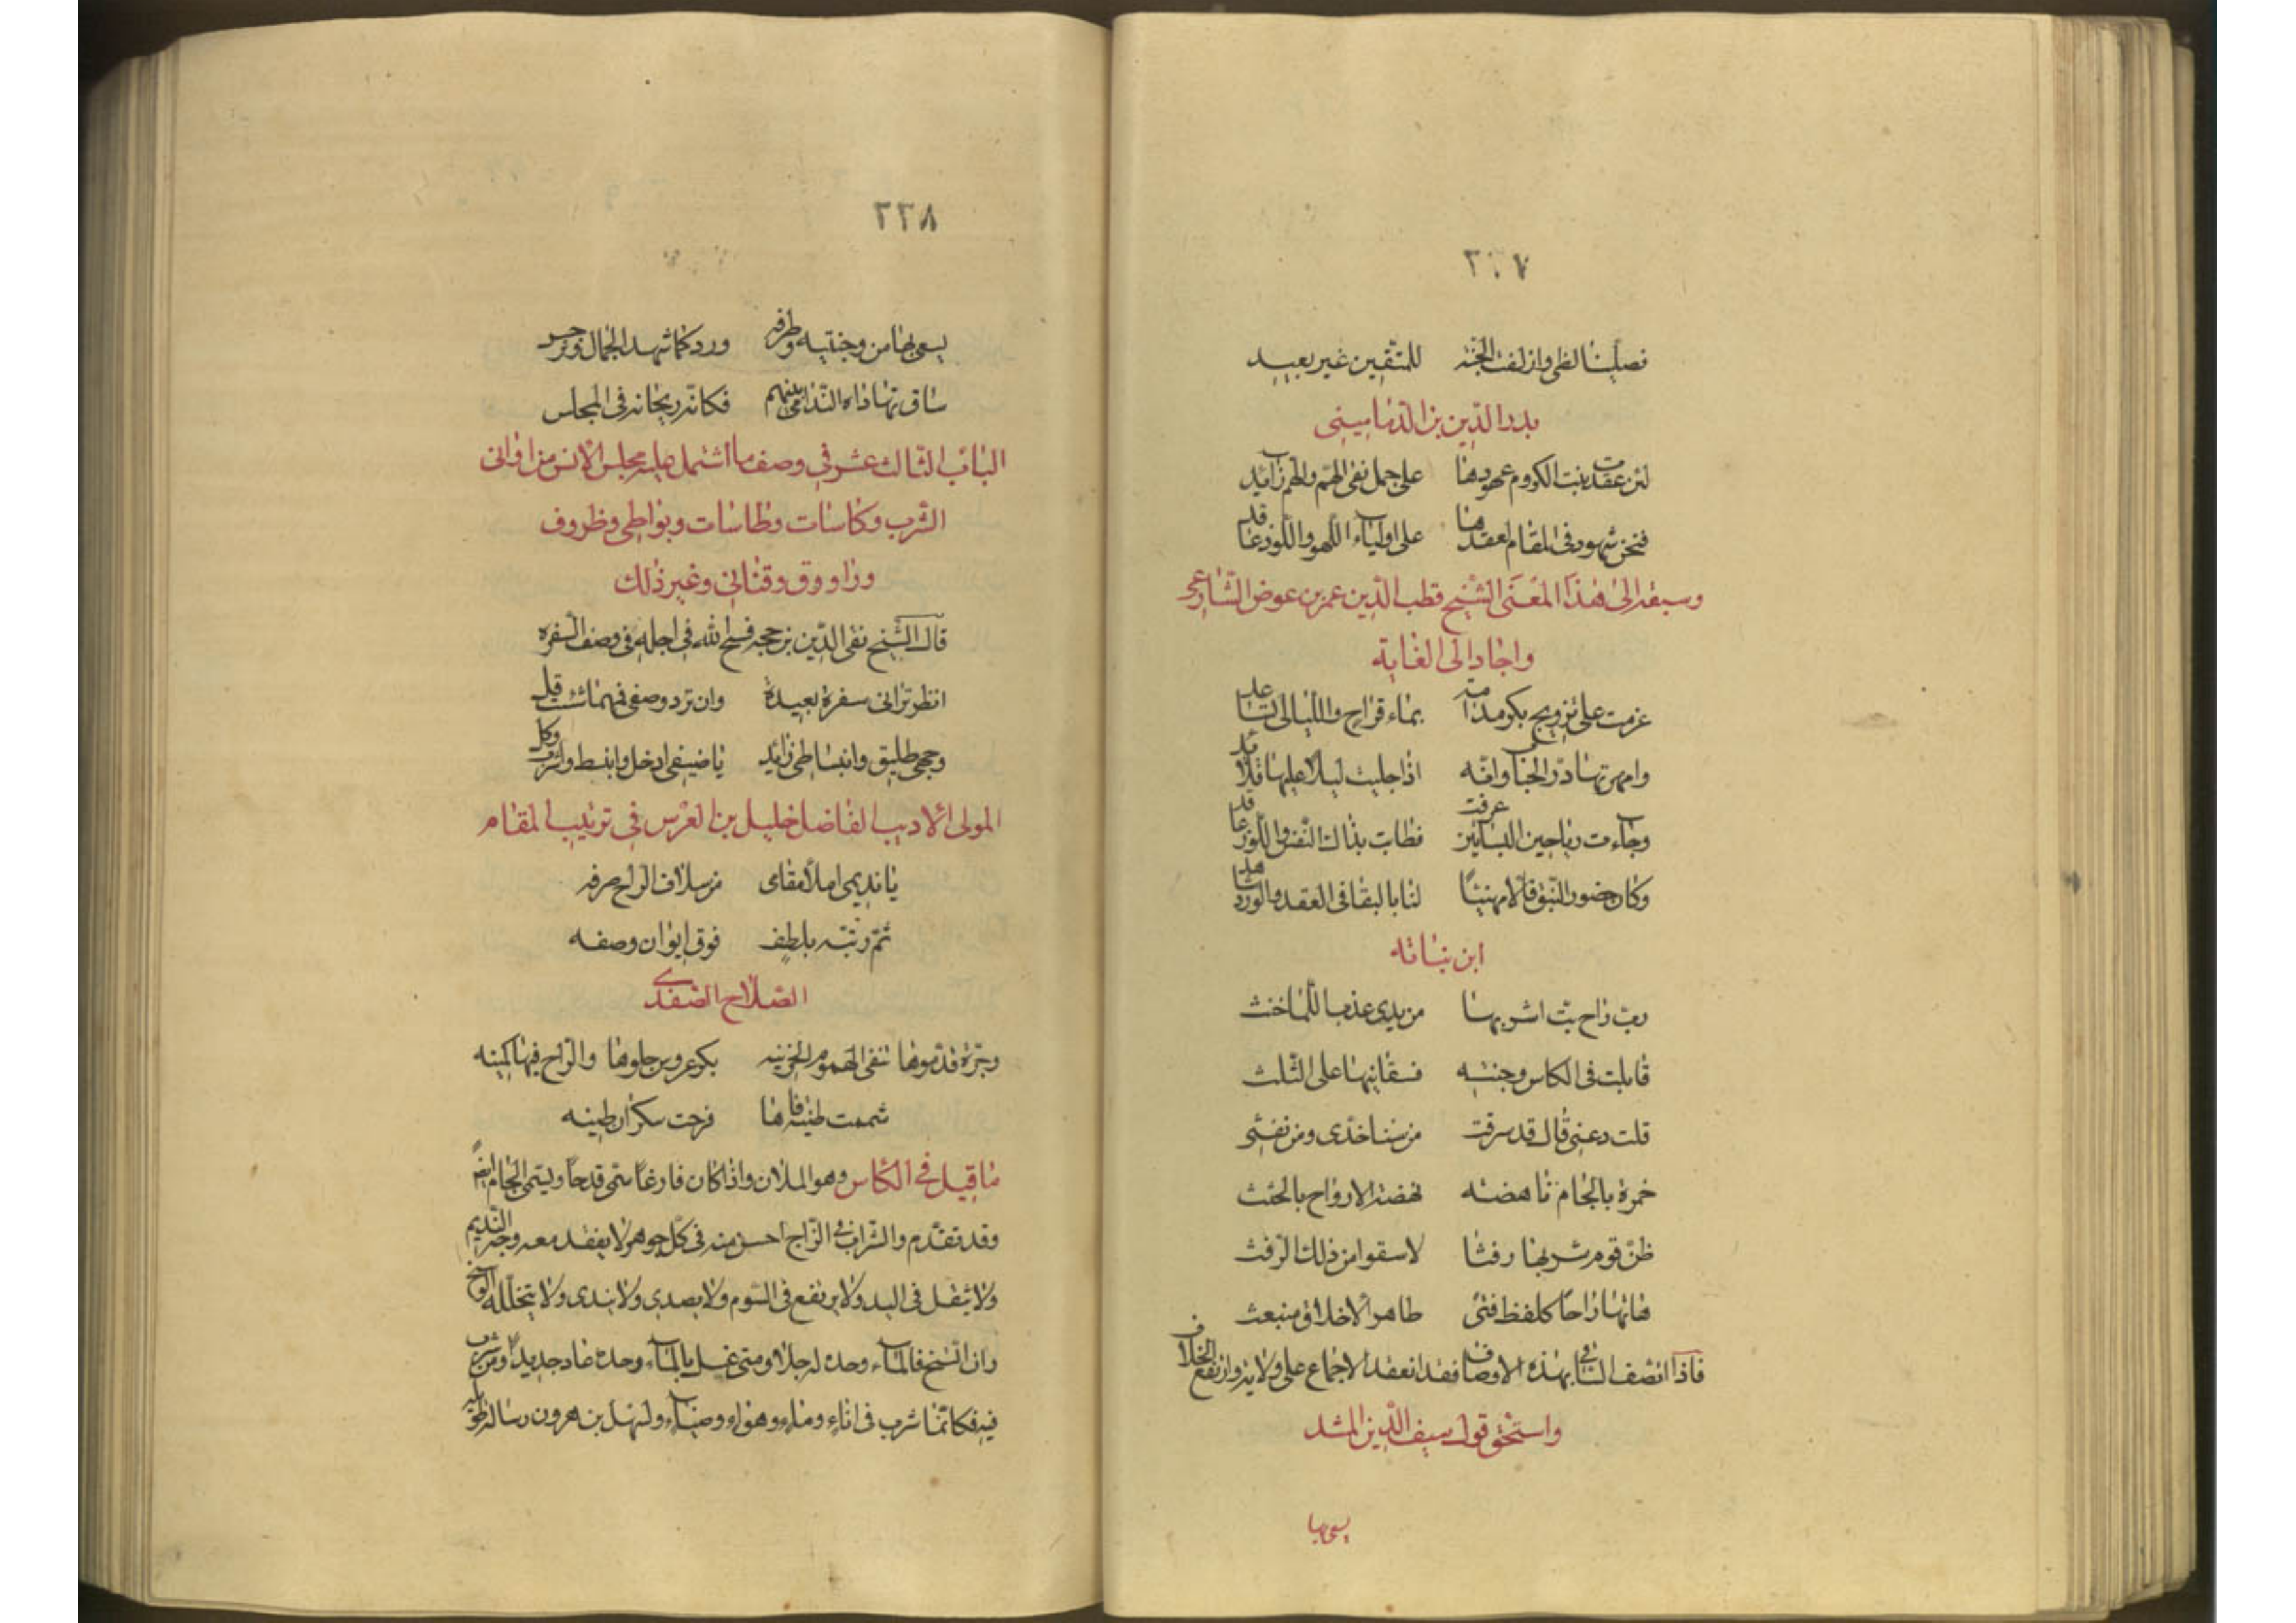 ٢٢٧
نصلينا لظى وازلفت الجنة للمتقين غير بعيد
بدر الدين بن الدماميني
لئن عقدت بنت الكروم عهودها على جمل نفى الهم والهم زايد
فنحن شهود في المقام لعقدها على اولياء اللهو واللوز عاقد
وسبقه الى هذا المعنى الشيخ قطب الدين عمر بن عوض الشارعى
واجاد الى الغاية
عزمت على تزويج بكر مدامة بماء قراح والليالى تساعد
وامهرتها در الحباب وانه اذا جليت ليلا عليها قلايد
وجاءت رياحين البساتين عرفت فطابت بذاك النفس واللوز عاقد
وكان حضور النبق فالا مهنيا لنا بالبقا في العقد والورد شاهد
ابن نباته
رب راح بت اشربها من يدى عذب اللما خنث
قابلت في الكاس وجنته فسقانيها على الثلث
قلت دعنى قال قد سرقت من سنا خدى ومن نفثى
خمرة بالجام ناهضته نهضة الارواح بالجثث
ظن قوم شربها رفثا لا سقوا من ذلك الرفث
هاتها راحا كلفظ فتى طاهر الاخلاق منبعث
فاذا اتصف الساقى بهذه الاوصاف فقد انعقد الاجماع على ولايته وارتفع الخلاف
واستحق قول سيف الدين المشد
يسعى بها
٢٢٨
يسعى بها من وجنتيه وطرفه ورد كما شهد الجمال ونرجس
ساق تهاداه الندامى بينهم فكانه ريحانه في المجلس
الباب الثالث عشر في وصف ما اشتمل عليه مجلس الانس من اوانى
الشرب وكاسات وطاسات وبواطى وظروف
وراووق وقنانى وغير ذلك
قال الشيخ تقى الدين بن حجه فسح الله فى اجله فى وصف السفره
انظر ترانى سفرة بعيدة وان ترد وصفى فمهما شئت قل
وجهى طليق وانبساطى زائد يا ضيفى ادخل وانبسط واشرب وكل
المولى الاديب الفاضل خليل بن الغرس في ترتيب المقام
يا نديمى املا مقامى من سلاف الراح صرفه
ثم رتبه بلطف فوق ايوان وصفه
الصلاح الصفدى
وجرة قدموها تنفى الهموم الحزينه بكر عروس جلوها والراح فيها كمينه
شممت طينة فاها فرحت سكران طينه
ما قيل في الكاس وهو الملان واذا كان فارغا سمى قدحا ويسمى الجام ايضا
وقد تقدم والشراب في الزجاج احسن منه فى كل جوهر لا يفقد معه وجه النديم
ولا يثقل في اليد ولا يرتفع فى السوم ولا يصدى ولا يندى ولا يتخلله الوسخ
وان اتسخ فالماء وحده له جلا ومتى غسل بالماء وحده عاد جديدا ومن شرب
فيه فكانما شرب فى اناء وماء وهواء وضياء ولسهل بن هرون رسالة طويلة